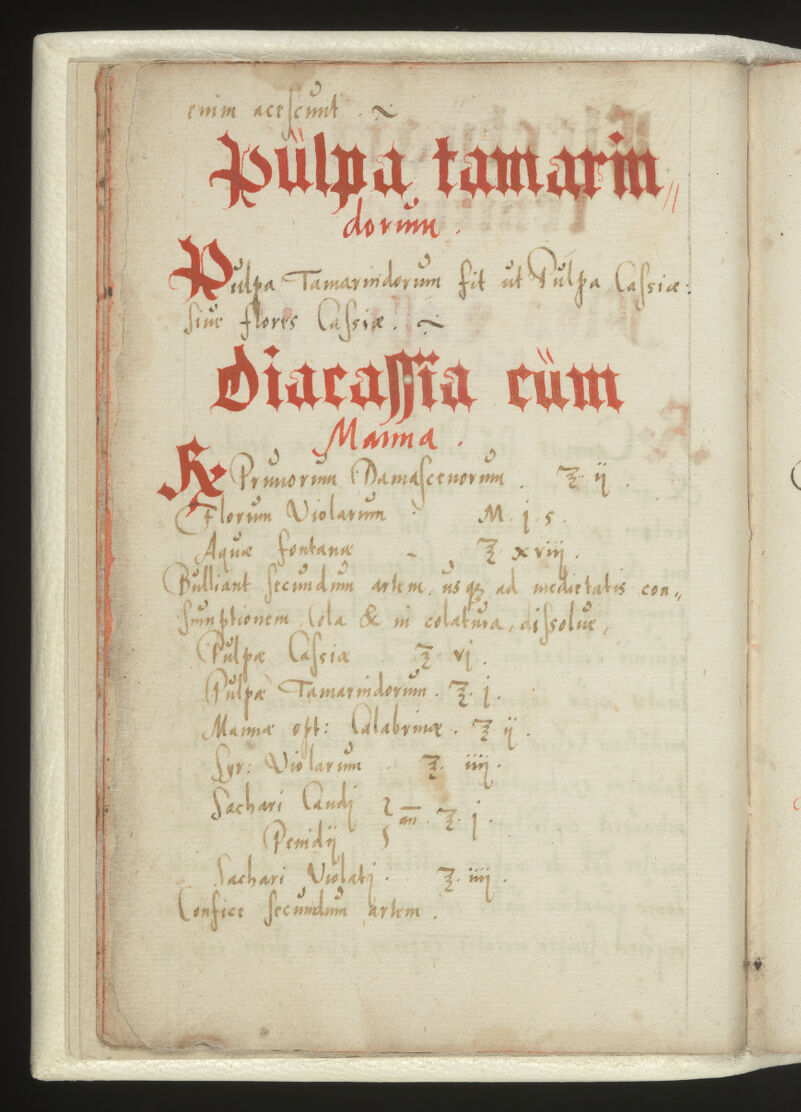 enim acescunt . ~
Pülpa tamarin〃
dorum .
Pulpa Tamarindorum fit ut Pulpa Cassiæ:
sive flores Cassiæ . ~
Diacassia cüm
Manna .
℞ Prunorum Damascenorum . ℥ ij .
Florum Violarum . M . j . s .
Aquæ fontanæ - ℥ xviij .
Bulliant secundum artem, usq₃ ad medietatis con〃
sumptionem, Cola & in colatura, dissolue,
Pulpæ Cassiæ ℥ vj .
Pulpæ Tamarindorum . ℥ j .
Mannæ opt: Calabrinæ . ℥ ij .
Syr: Violarum . ℥ iiij .
Sachari Candj } an̄ . ℥ j .
Penidij
Sachari Violatj . ℥ iiij .
Confice secundum artem .